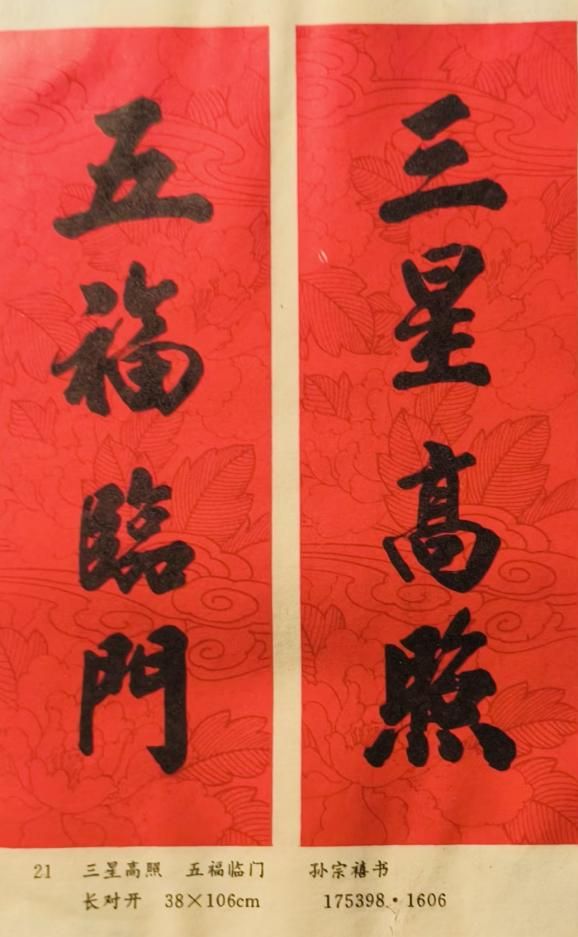 三星高照
五福臨門
21 三星高照 五福临门 孙宗禧书
长对开 38×106cm 175398·1606